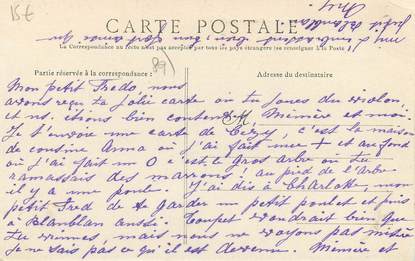 15€
CARTE POSTALE
La Correspondance au recto n'est pas acceptée par tous les pays étrangers (se renseigner à la Poste)
Partie réservée à la correspondance :
Adresse du destinataire
89
Mon petit Fredo, nous
avons reçu ta jolie carte où tu joues du violon,
et ns. étions bien contents, Mémère et moi.
Je t'envoie une carte de Cezy, c'est la maison
de cousine Anna où j'ai fait une + et au fond
où j'ai fait un O c'est le gros arbre où tu
ramassais des marrons! au pied de l'arbre
il y a une poule. J'ai dis à Charlotte, mon
petit Fred de te garder un petit poulet et puis
à Blanblan aussi. voudrait bien que
tu viennes, mais nous ne voyons pas
Je ne sais pas ce qu'il est devenu. Mémère et